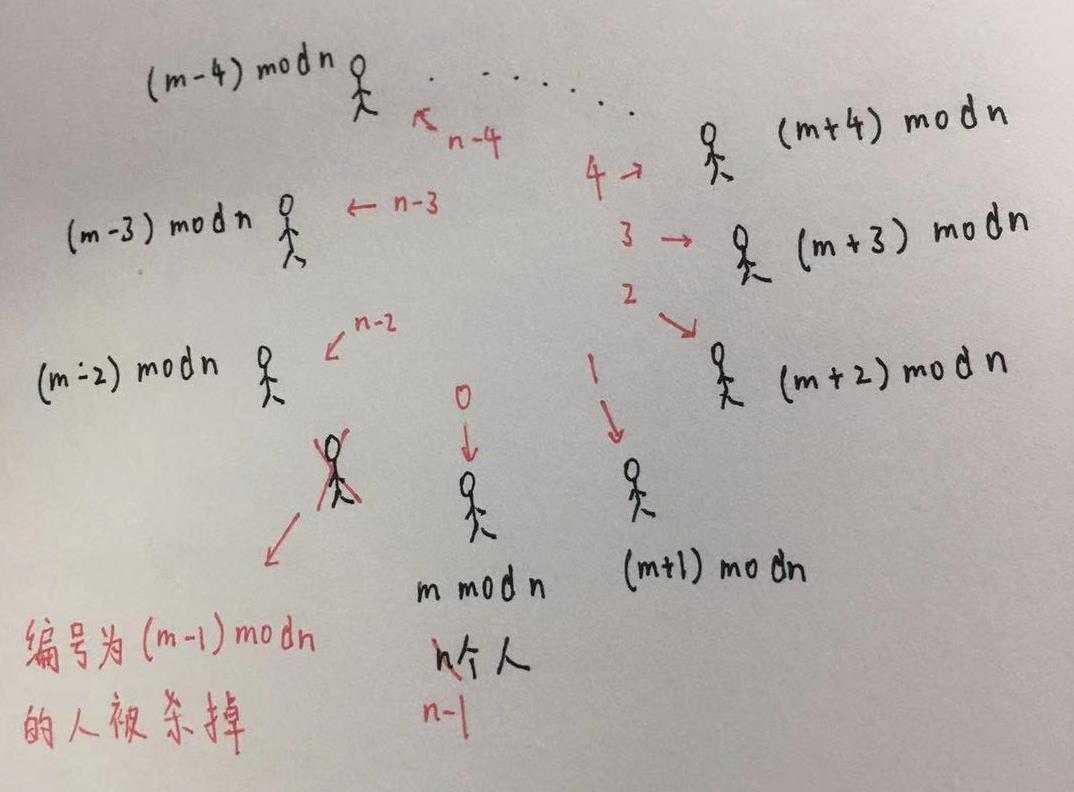 (m-4) mod n
n-4
(m+4) mod n
4
(m-3) mod n
n-3
3
(m+3) mod n
2
n-2
(m-2) mod n
1
(m+2) mod n
0
m mod n
(m+1) mod n
编号为(m-1) mod n
的人被杀掉
n个人
n-1